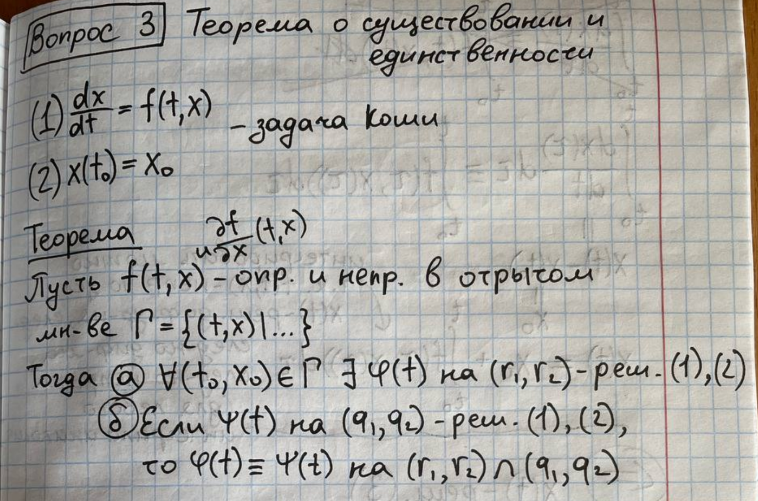 Вопрос 3 Теорема о существовании и
единственности
(1) dx/dt = f(t,x)
- задача Коши
(2) x(t₀) = x₀
Теорема и ∂f/∂x (t,x)
Пусть f(t,x) - опр. и непр. в отрытом
мн-ве Γ = {(t,x)|...}
Тогда а ∀(t₀,x₀)∈Γ ∃ φ(t) на (r₁,r₂) - реш. (1),(2)
б Если ψ(t) на (q₁,q₂) - реш. (1),(2),
то φ(t) ≡ ψ(t) на (r₁,r₂) ∩ (q₁,q₂)